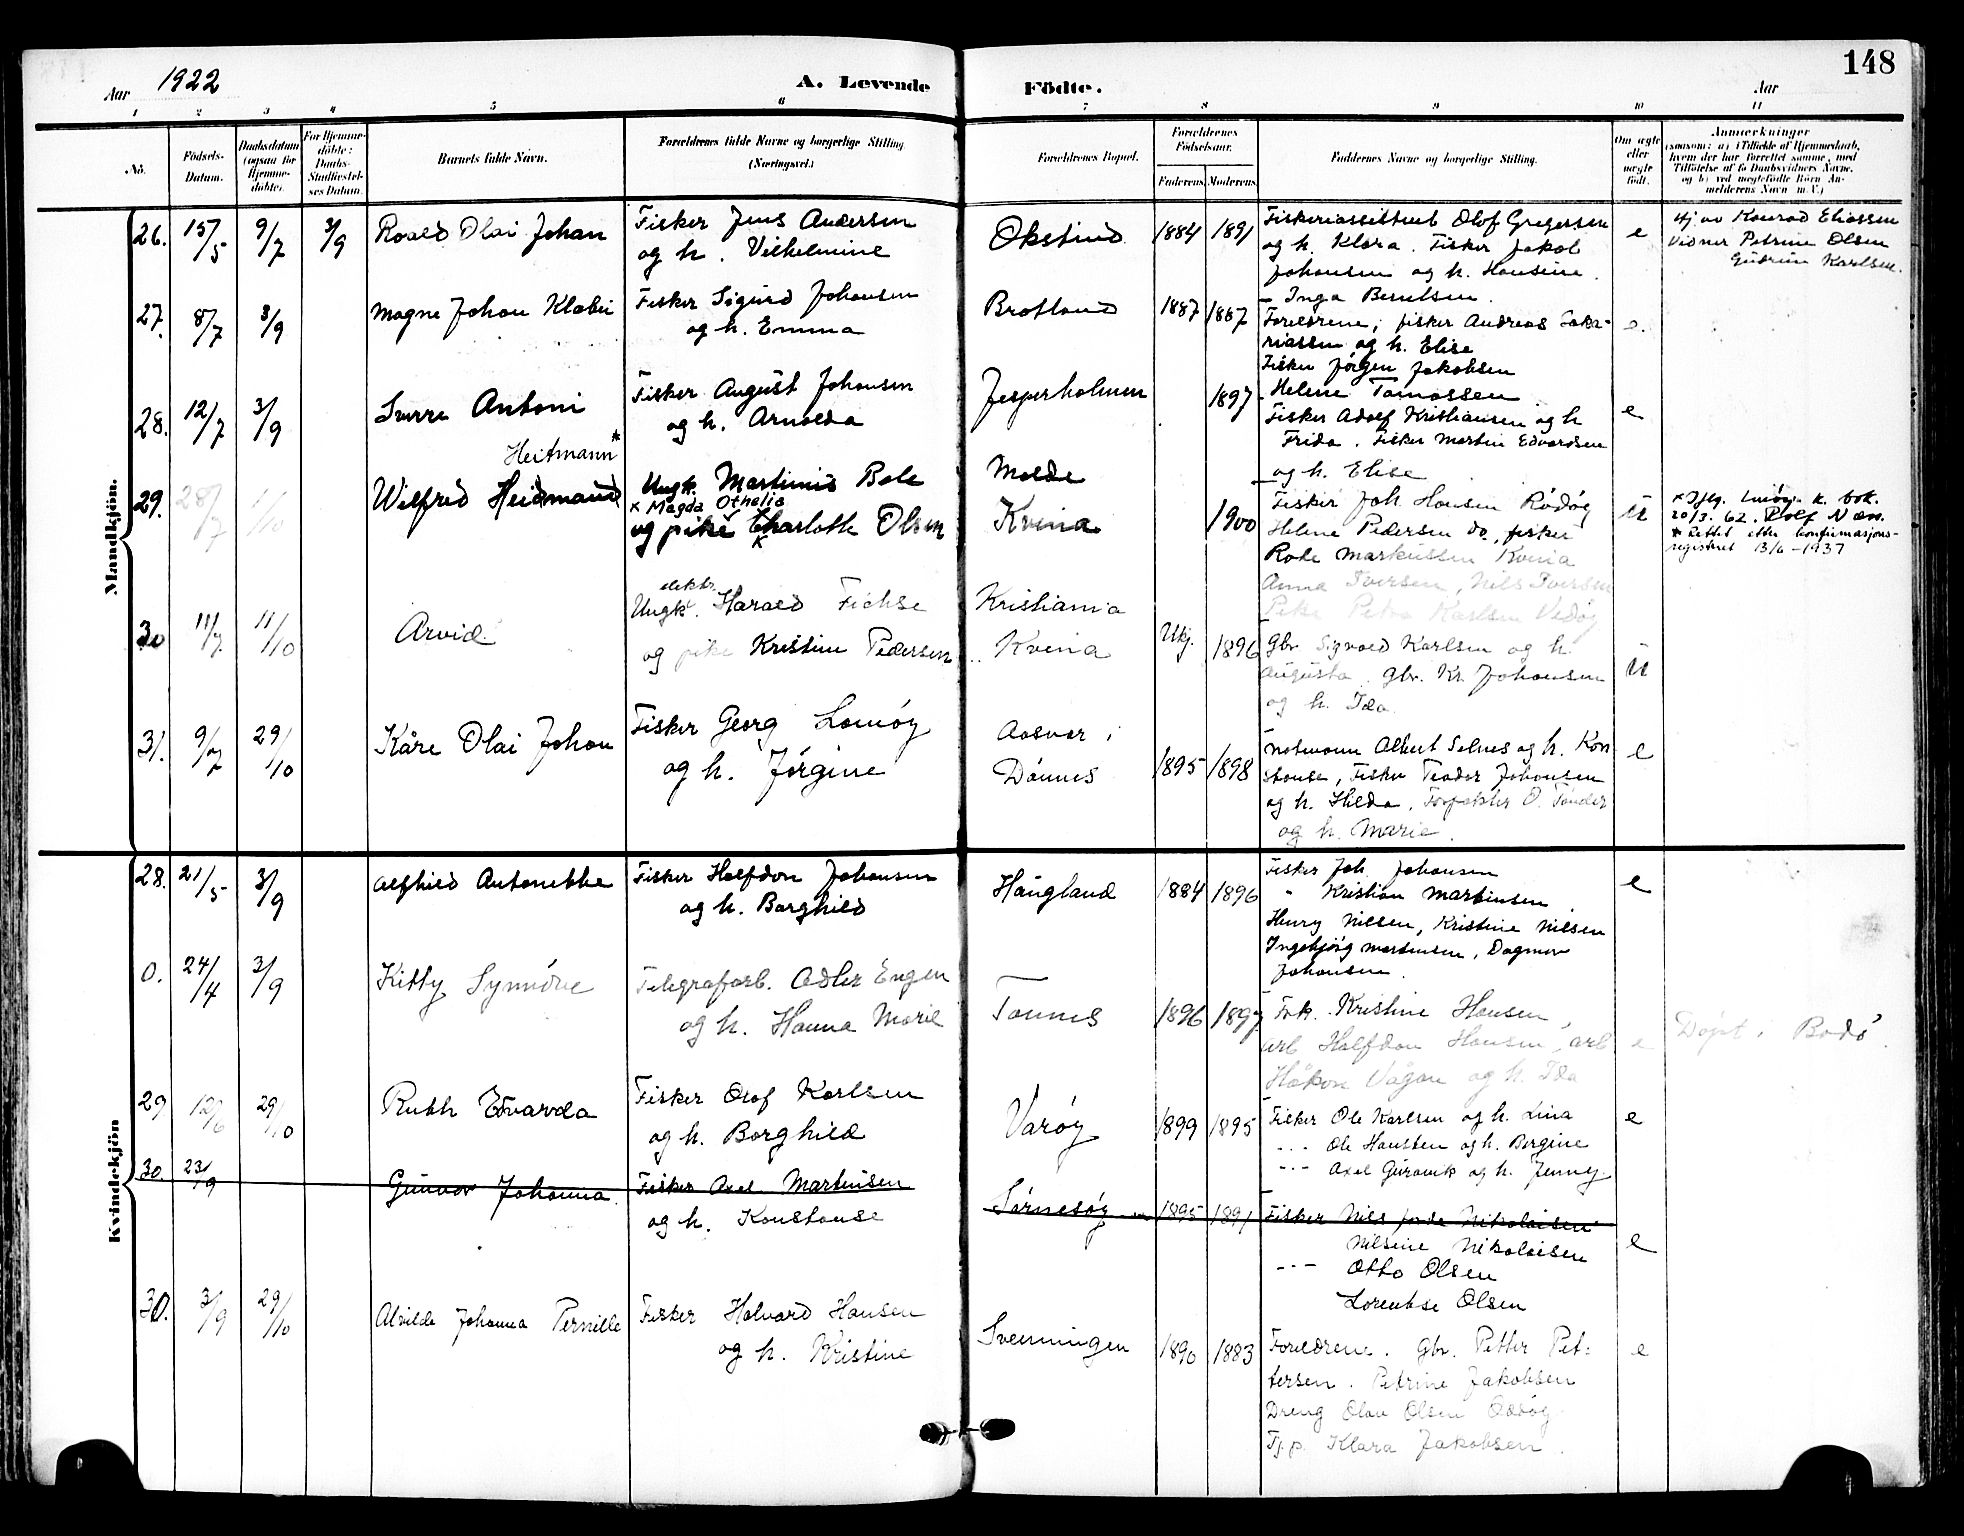 148
Aar 1922
A. Levende Födte.
Aar
1 2 3 4 5 6 7 8 9 10 11
No.
Födsels-Datum.
Daabsdatum (ogsaa for Hjemme-döbte).
For Hjemme-döbte: Daabs-Stadfæstel-ses Datum.
Barnets fulde Navn.
Forældrenes fulde Navne og borgerlige Stilling (Næringsvei.)
Forældrenes Bopæl.
Forældrenes Födselsaar.
Faderens.
Moderens.
Faddernes Navne og borgerlige Stilling.
Om ægte eller uægte födt.
Anmærkninger
Mandkjön.
26. 15/5 9/7 3/9 Roald Olai Johan
Fisker Jens Andersen
og h. Vilhelmine
Økstind 1884 1891
Fiskeriassistent Olof Gregersen
og h. Klara. Fisker Jakob
Johansen og h. Hansine.
e
Hj. av Konrad Eliassen
Vidner Petrine Olsen
Gudrun Karlsen.
27. 8/7 3/9 Magne Johan Klabu
Fisker Sigurd Johansen
og h. Emma
Brotland 1887 1887
Inga Berntsen.
Foreldrene; fisker Andreas Saka-
riassen og h. Elise
Fisker Jørgen Jakobsen
e.
28. 12/7 3/9 Sverre Antoni
Fisker August Johansen
og h. Arnolda
Jesperholmen 1897
Helene Tomassen
Fisker Adolf Kristiansen og h
Frida. Fisker Martin Edvardsen
og h. Elise
e
Heitmann*
29. 28/7 1/10 Wilfred Heidmand
Ungk. Martinus Bole
x Magda Othelia
og pike Charlotte Olsen
Molde
Kvina
1900
Fisker Joh. Hansen Rödög
Helene Pedersen do, fisker
Rode Markussen Kvina
Anna Iversen, Nils Iversen
Pike Petra Karlsen Vedøy
u
20/3. 62. Rolf Næs.
* Rettet etter konfirmasjons-
registret 13/6-1937
30 11/7 11/10 Arvid
Ungk. Harald
og pike Kristine Pedersen
Kristiania
Kvina
Ukj. 1896
Gbr Sigvald Karlsen og h.
Augusta. gbr. Kr. Johansen
og h. Ida.
u
31. 9/7 29/10 Kåre Olai Johan
Fisker Georg Lomøy
og h. Jørgine
Aasvær i
Dønnes
1895 1898
Notemann Albert Selnes og h. Kon
stanse, Fisker Teodor Johansen
og h. Hilda, Forpakter O. Tønder
og h. Marie.
e
Kvindekjön
28. 21/5 3/9 Alfhild Antonette
Fisker Halfdan Johansen
og h. Borghild
Haugland 1884 1896
Fisker Joh. Johansen
" Kristian Martinsen
Henry Nilsen, Kristine Nilsen
Ingebjörg Martinsen, Dagmar
Johansen.
e
0. 24/4 3/9 Kitty Synnöve
Telegrafarb. Adler Engen
og h. Hanna Marie
Tonnes 1896 1897
Frk. Kristine Hansen,
arb Halfdan Hansen, arb
Håkon Vågan og h. Ida
e
Döpt i Bodö.
29 12/6 29/10 Ruth Edvarda
Fisker Olof Karlsen
og h. Borghild
Varøy 1899 1895
Fisker Ole Karlsen og h. Lina
-"- Ole Hansten og h. Bergine
-"- Axel Guravik og h. Jenny.
e
30. 23/9 Gunvor Johanna
Fisker Axel Martinsen
og h. Konstanse
Sørnesøy 1895 1891
Fisker Nils Nikolaisen
Nilsine Nikolaisen
-"- Otto Olsen
Lorentse Olsen
e
30. 3/9 29/10 Alvilde Johanna Pernille
Fisker Halvard Hansen
og h. Kristine
Svenningen 1890 1883
Foreldrene. Gbr. Petter Pet-
tersen. Petrine Jakobsen
Dreng Olav Olsen
Tj.p. Klara Jakobsen.
e